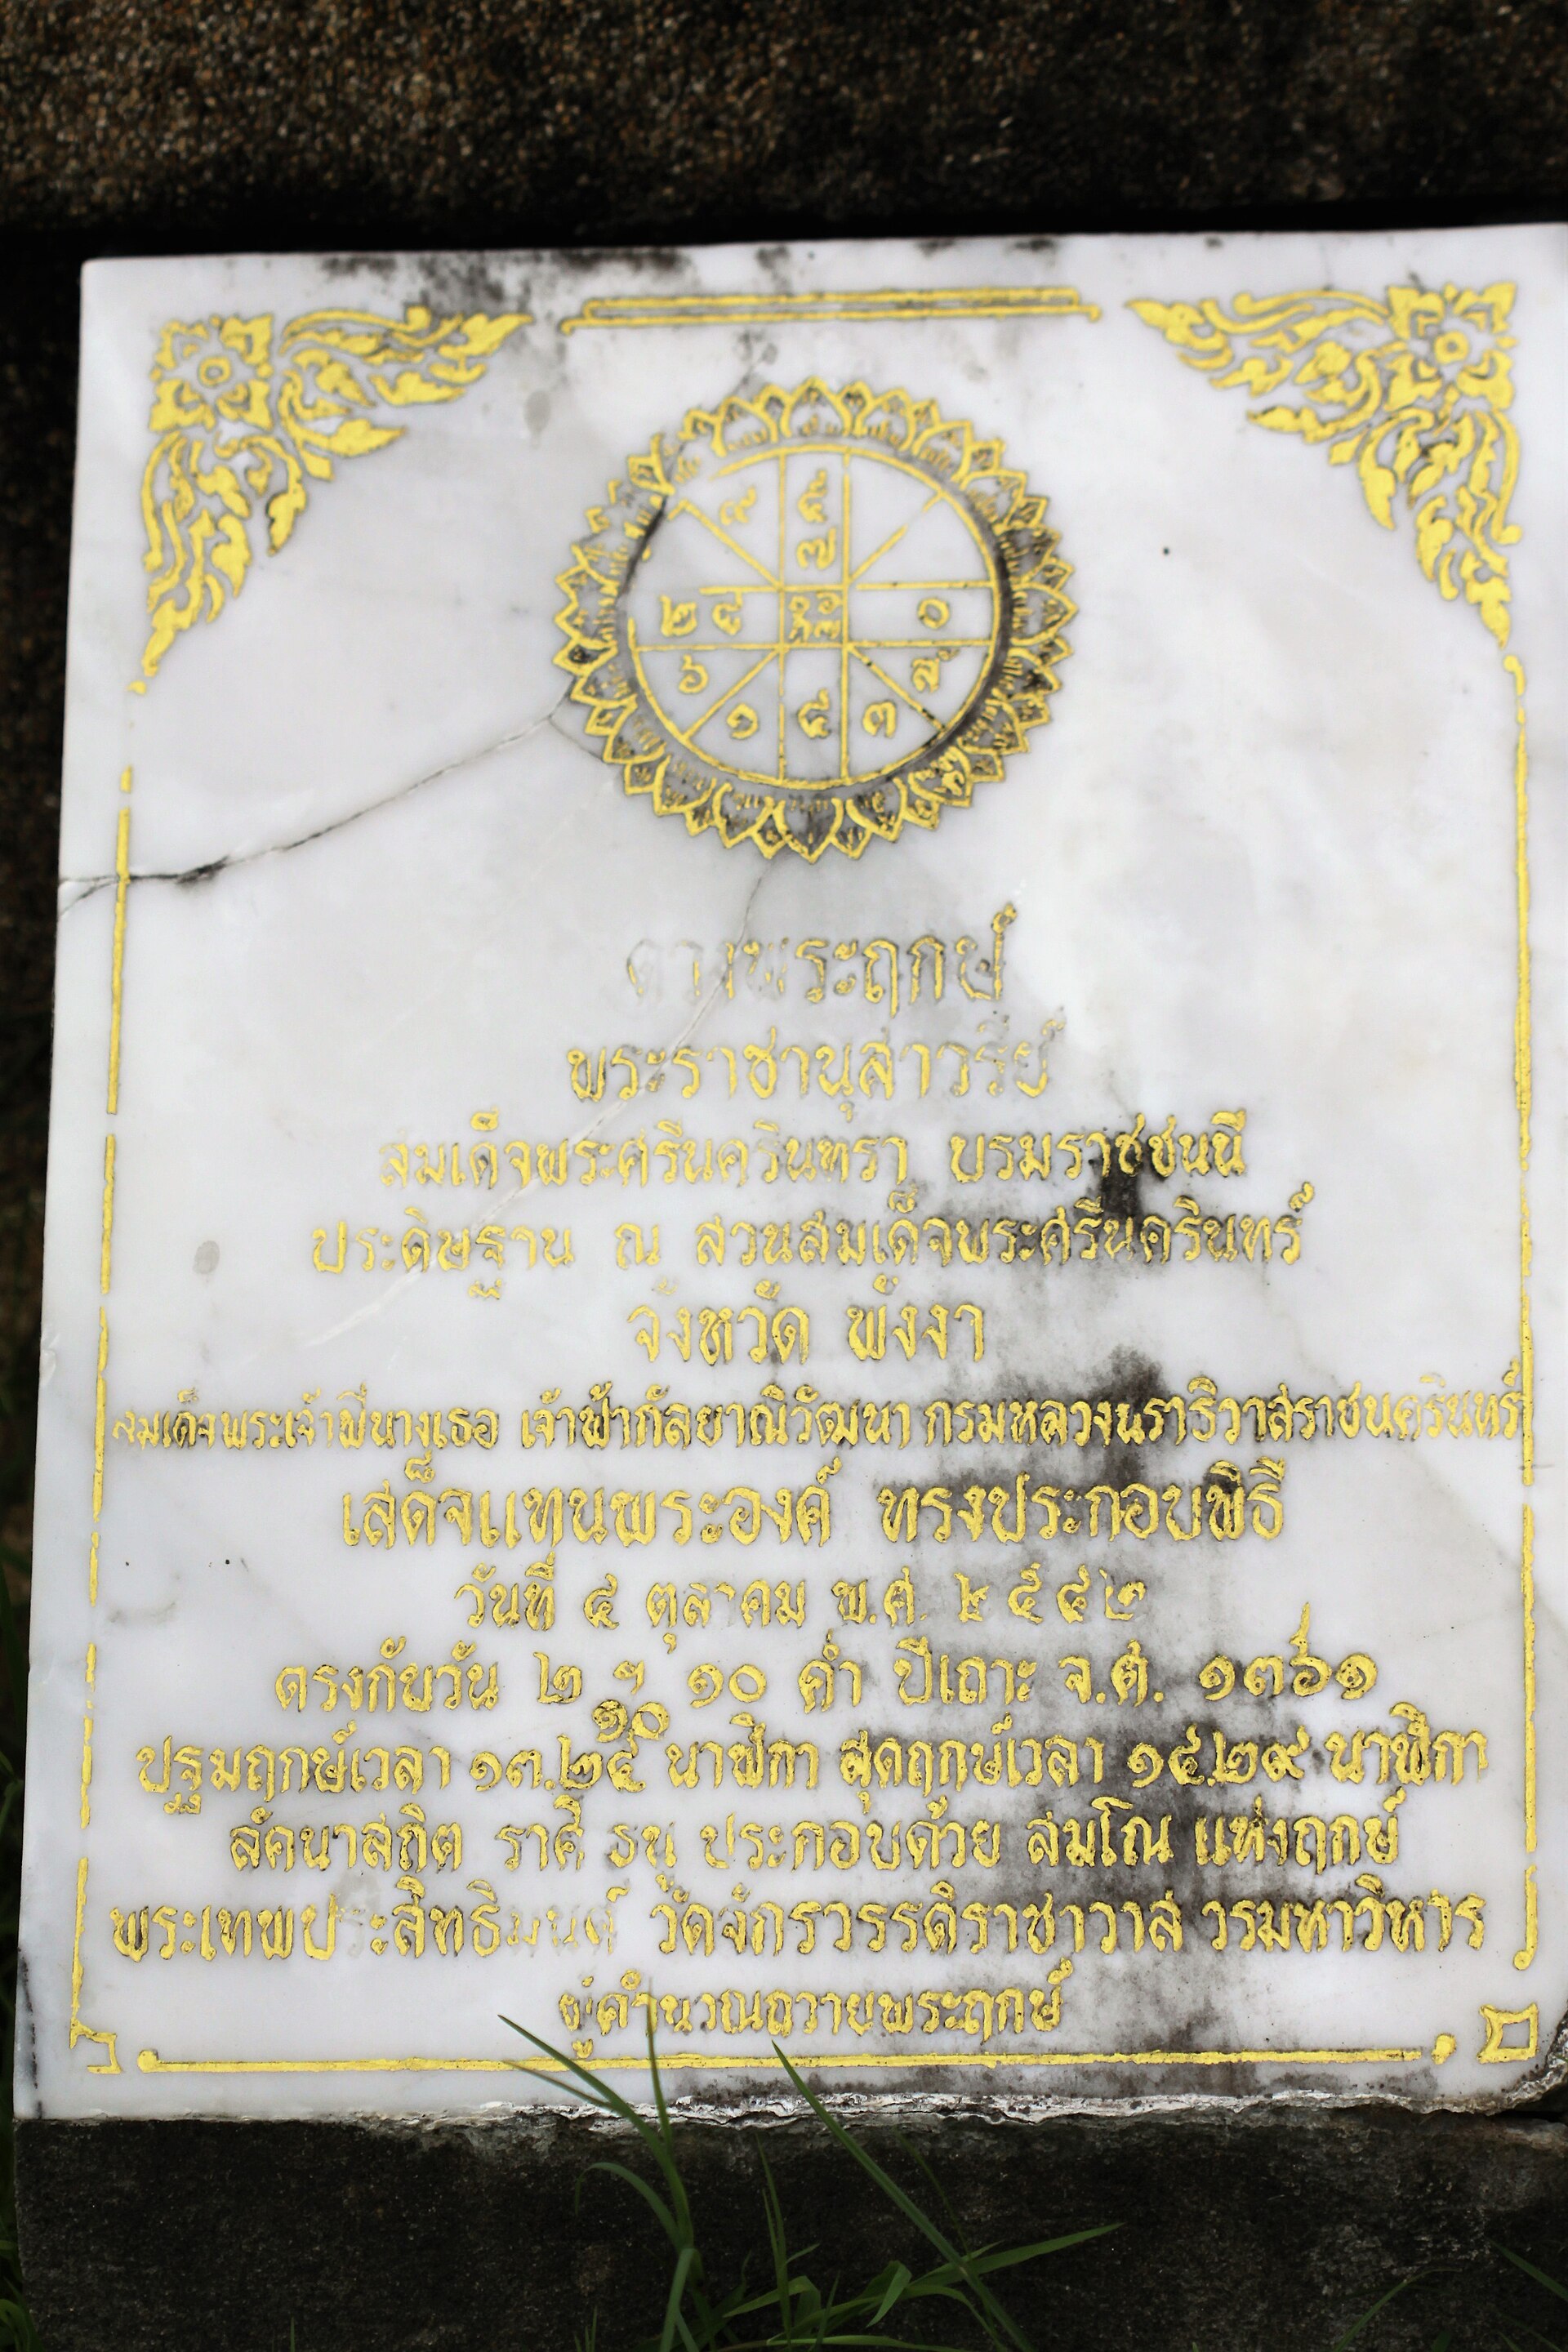 ๔ ๕
๗
๒ ๘ ๐
๖ ล
๑ ๕ ๓
ดวงพระฤกษ์
พระราชานุสาวรีย์
สมเด็จพระศรีนครินทรา บรมราชชนนี
ประดิษฐาน ณ สวนสมเด็จพระศรีนครินทร์
จังหวัด พังงา
สมเด็จพระเจ้าพี่นางเธอ เจ้าฟ้ากัลยาณิวัฒนา กรมหลวงนราธิวาสราชนครินทร์
เสด็จแทนพระองค์ ทรงประกอบพิธี
วันที่ ๔ ตุลาคม พ.ศ. ๒๕๔๒
ตรงกับวัน ๒ ฯ ๑๐ ค่ำ ปีเถาะ จ.ศ. ๑๓๖๑
๑๐
ปฐมฤกษ์เวลา ๑๓.๒๕ นาฬิกา สุดฤกษ์เวลา ๑๔.๒๙ นาฬิกา
ลัคนาสถิต ราศี ธนู ประกอบด้วย สมโณ แห่งฤกษ์
พระเทพประสิทธิมนต์ วัดจักรวรรดิราชาวาส วรมหาวิหาร
ผู้คำนวณถวายพระฤกษ์